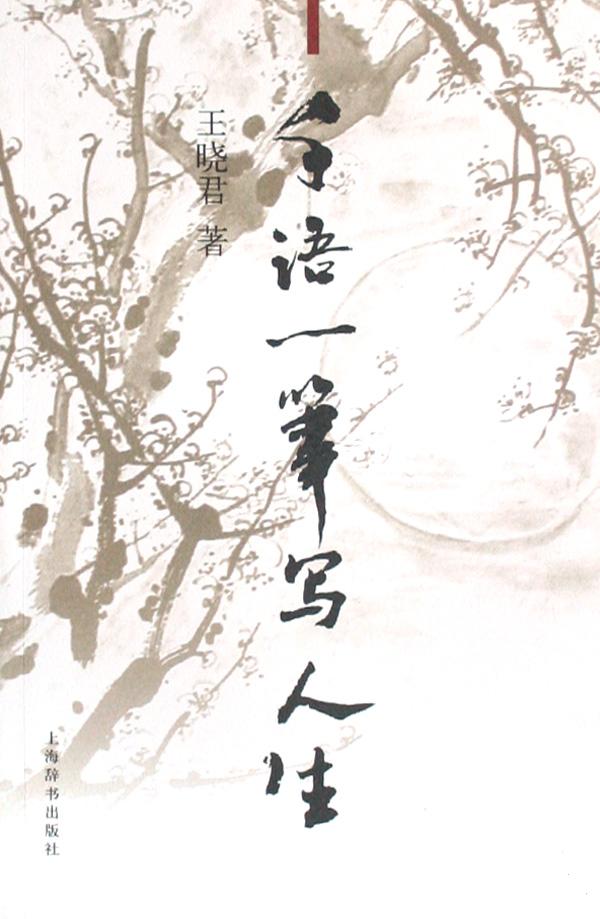 语一筆写人性
王晓君 著
上海辞书出版社